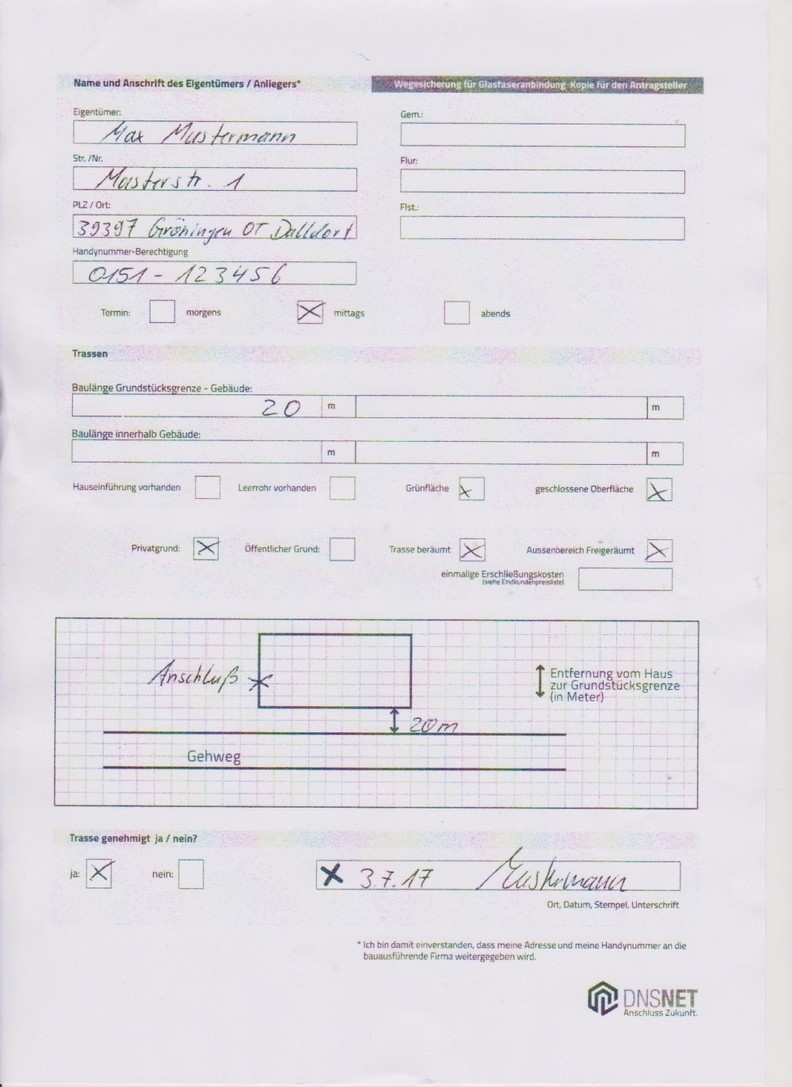 Name und Anschrift des Eigentümers / Anliegers*
Wegesicherung für Glasfaseranbindung Kopie für den Antragsteller
Eigentümer:
Max Mustermann
Gem.:
Str. /Nr.
Musterstr. 1
Flur:
PLZ / Ort:
39397 Gröningen OT Dalldorf
Flst.:
Handynummer-Berechtigung
0151 - 123456
Termin: morgens mittags abends
Trassen
Baulänge Grundstücksgrenze - Gebäude:
20 m m
Baulänge innerhalb Gebäude:
m m
Hauseinführung vorhanden Leerrohr vorhanden Grünfläche geschlossene Oberfläche
Privatgrund: Öffentlicher Grund: Trasse beräumt Aussenbereich Freigeräumt
einmalige Erschließungskosten
(siehe Endkundenpreisliste)
Anschluß
Entfernung vom Haus
zur Grundstücksgrenze
(in Meter)
20m
Gehweg
Trasse genehmigt ja / nein?
ja: nein: 3.7.17 Mustermann
Ort, Datum, Stempel, Unterschrift
* Ich bin damit einverstanden, dass meine Adresse und meine Handynummer an die
bauausführende Firma weitergegeben wird.
DNSNET
Anschluss Zukunft.